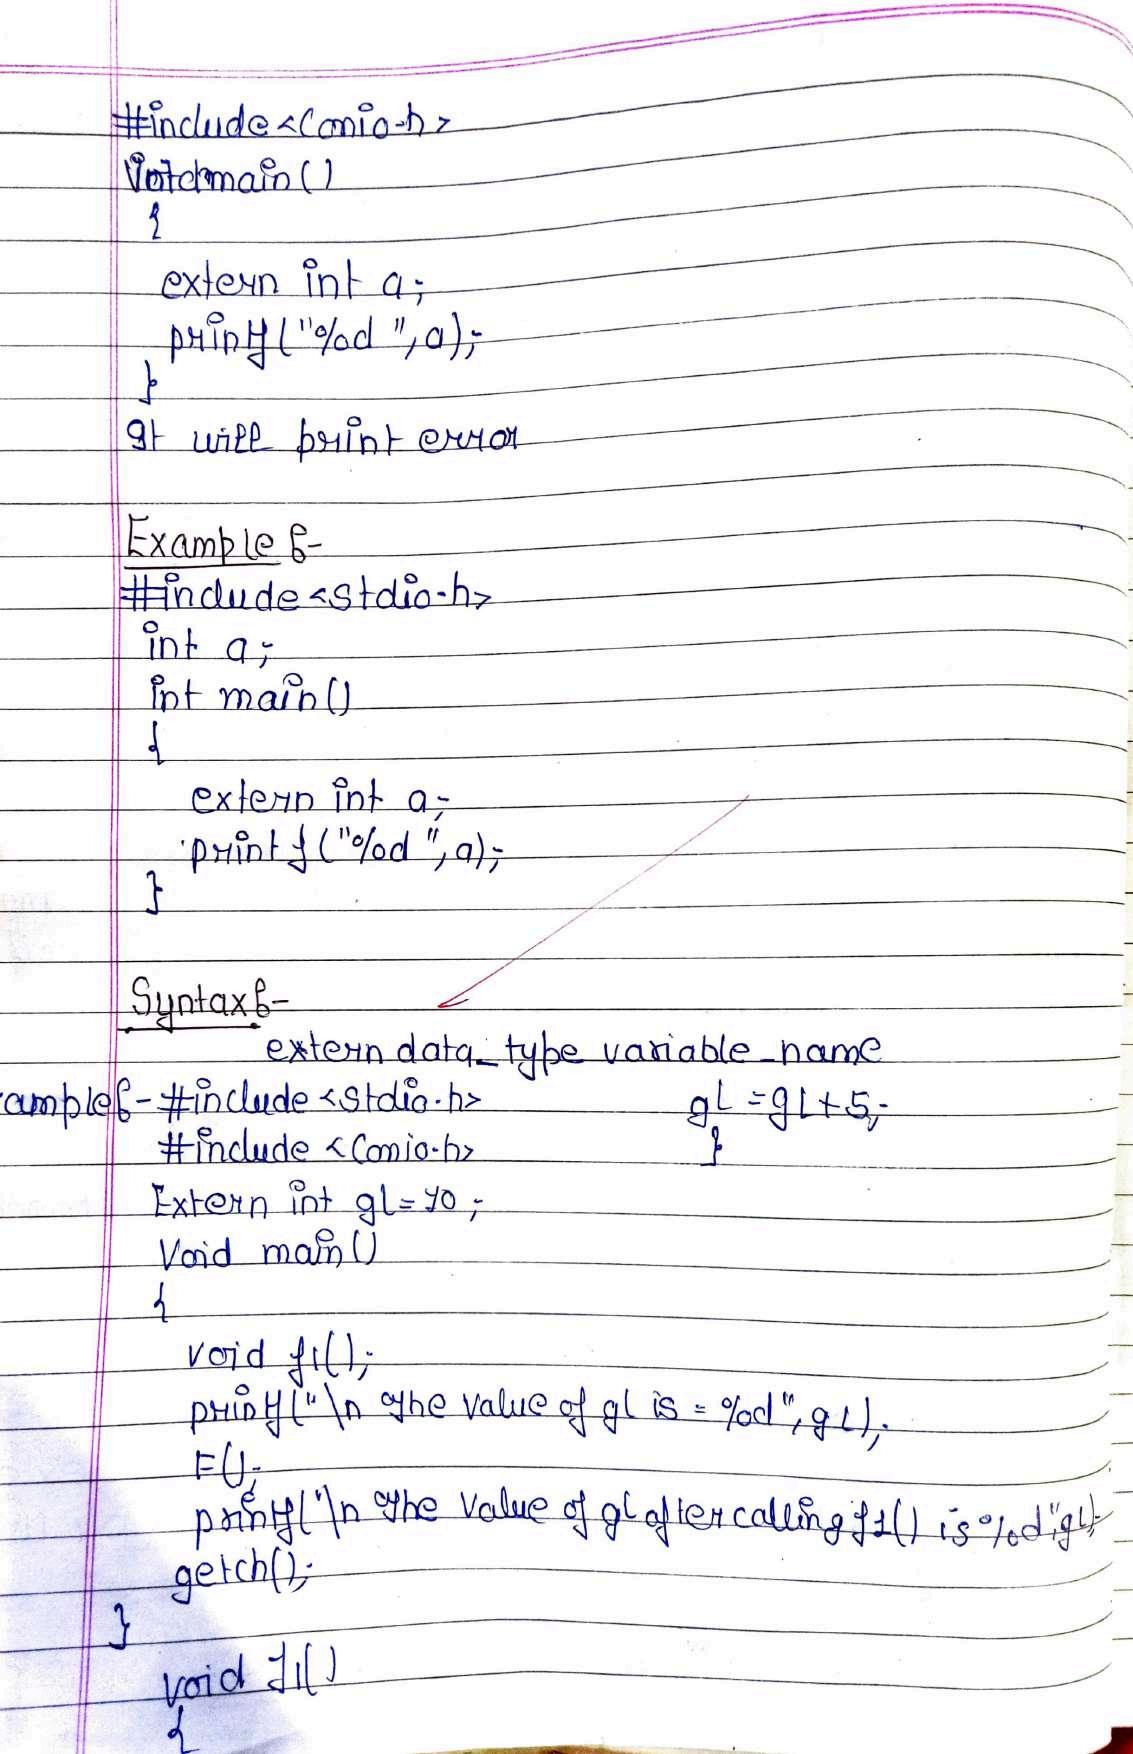 #include<Conio.h>
Void main()
{
extern int a;
printf("%d", a);
}
It will print error
Example :-
#include<stdio.h>
int a;
int main()
{
extern int a;
printf("%d", a);
}
Syntax :-
extern data_type variable_name
ample :- #include<stdio.h>
#include <Conio.h>
Extern int gl = 10;
Void main()
{
void f1();
printf("\n The value of gl is = %d", gl);
F();
printf("\n The value of gl after calling f1() is %d", gl);
getch();
}
void f1()
{
gl = gl + 5;
}